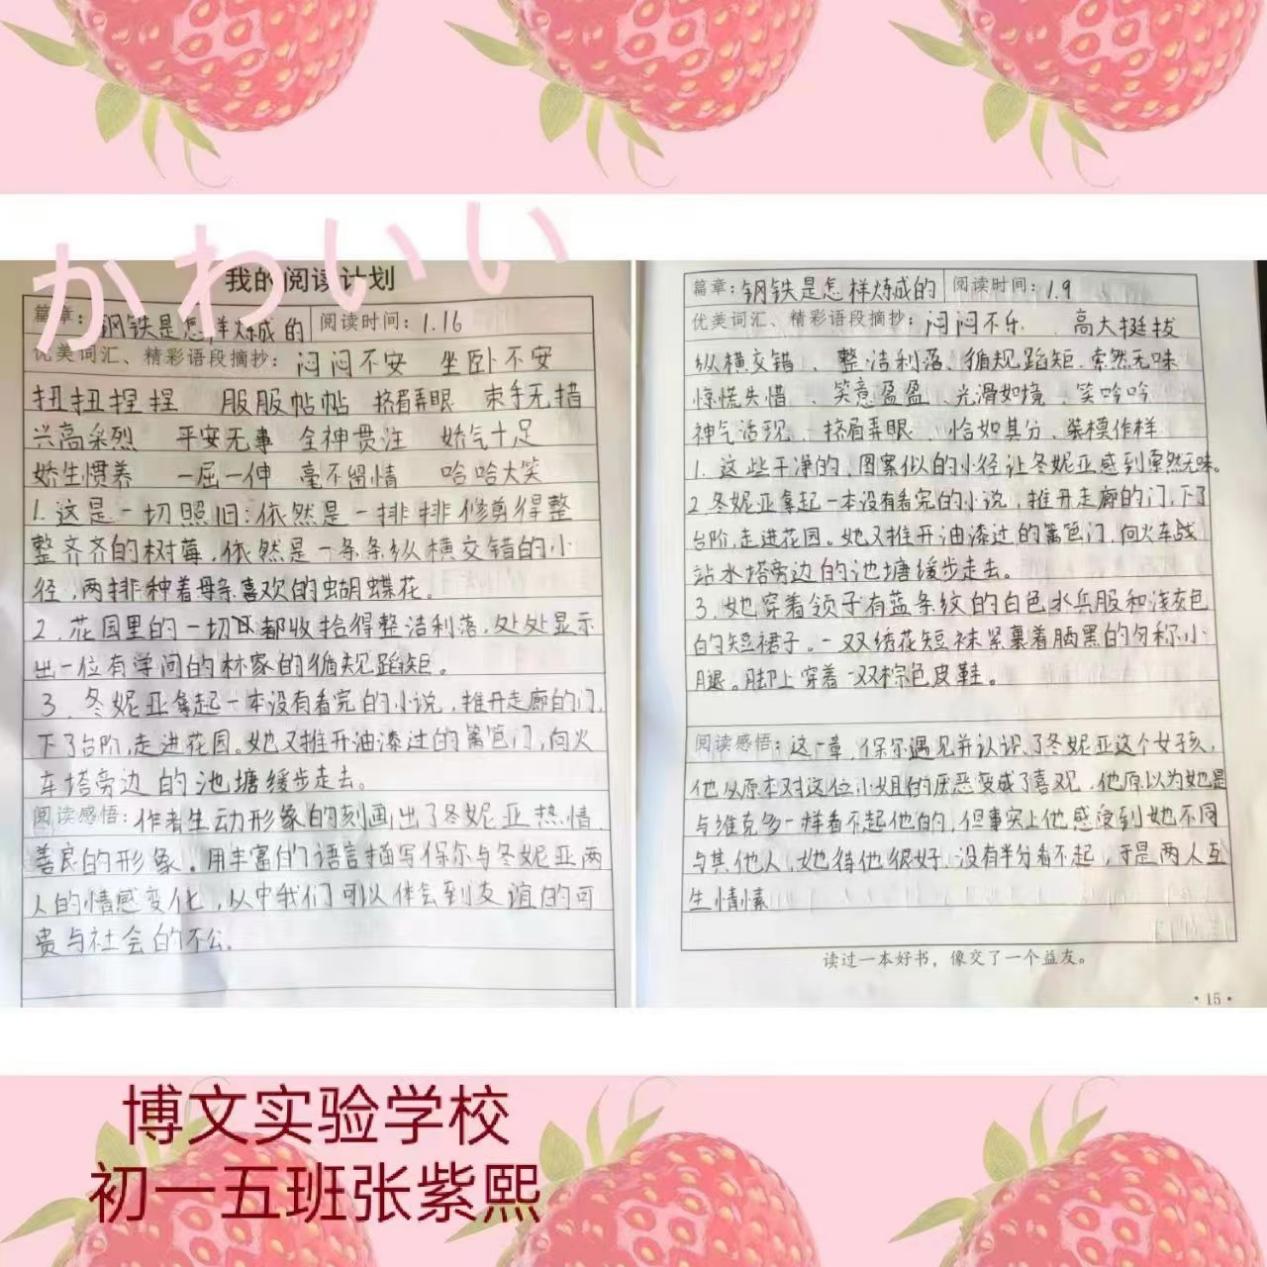 かわいい
我的阅读计划
篇章:钢铁是怎样炼成的 阅读时间:1.16
优美词汇、精彩语段摘抄:闷闷不安 坐卧不安
扭扭捏捏 服服帖帖 挤眉弄眼 束手无措
兴高采烈 平安无事 全神贯注 娇气十足
娇生惯养 一屈一伸 毫不留情 哈哈大笑
1.这是一切照旧:依然是一排排修剪得整
整齐齐的树莓,依然是一条条纵横交错的小
径,两排种着母亲喜欢的蝴蝶花。
2.花园里的一切都收拾得整洁利落,处处显示
出一位有学问的林家的循规蹈矩。
3.冬妮亚拿起一本没有看完的小说,推开走廊的门,
下了台阶,走进花园。她又推开油漆过的篱笆门,向火
车塔旁边的池塘缓步走去。
阅读感悟:作者生动形象的刻画出了冬妮亚热情、
善良的形象。用丰富的语言描写保尔与冬妮亚两
人的情感变化,从中我们可以体会到友谊的可
贵与社会的不公.
篇章:钢铁是怎样炼成的 阅读时间:1.9
优美词汇、精彩语段摘抄:闷闷不乐、高大挺拔
纵横交错、整洁利落、循规蹈矩、索然无味
惊慌失措、笑意盈盈、光滑如境、笑吟吟
神气活现、挤眉弄眼、恰如其分、装模作样
1.这些干净的、图案似的小径让冬妮亚感到索然无味。
2.冬妮亚拿起一本没有看完的小说,推开走廊的门,下了
台阶,走进花园。她又推开油漆过的篱笆门,向火车战
站水塔旁边的池塘缓步走去。
3.她穿着领子有蓝条纹的白色水兵服和浅灰色
的短裙子。一双绣花短袜紧裹着晒黑的匀称小
腿。脚上穿着一双棕色皮鞋。
阅读感悟:这一章,保尔遇见并认识了冬妮亚这个女孩,
他从原本对这位小姐的厌恶变成了喜观,他原以为她是
与维克多一样看不起他的,但事实上他感受到她不同
与其他人,她待他很好,没有半分看不起,于是两人互
生情愫
读过一本好书,像交了一个益友。
·15·
博文实验学校
初一五班张紫熙